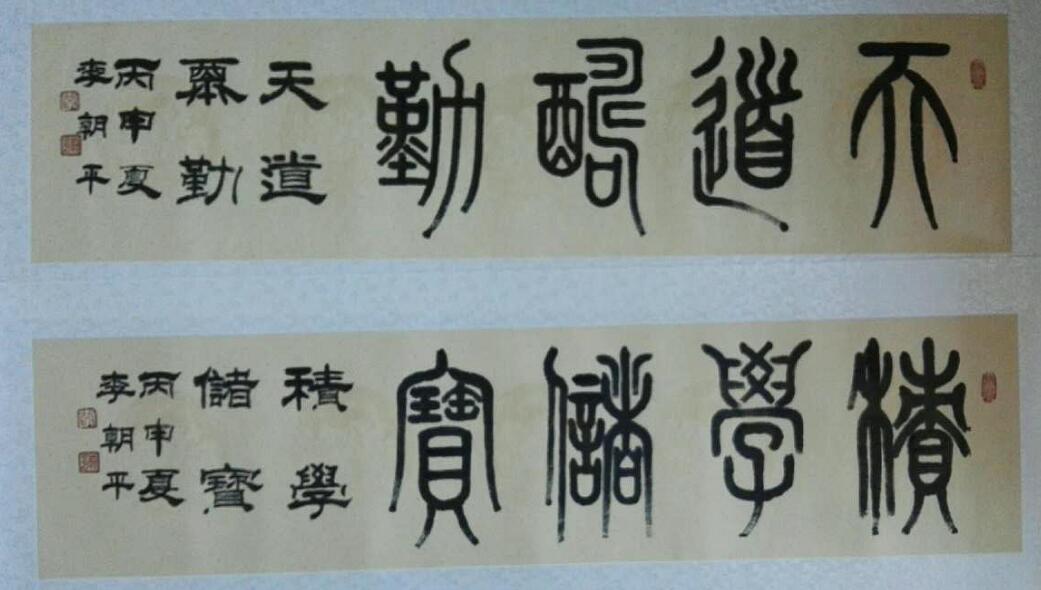 天道酬勤
天道
勤
丙申夏
李朝平
積學儲寶
積學
儲寶
丙申夏
李朝平